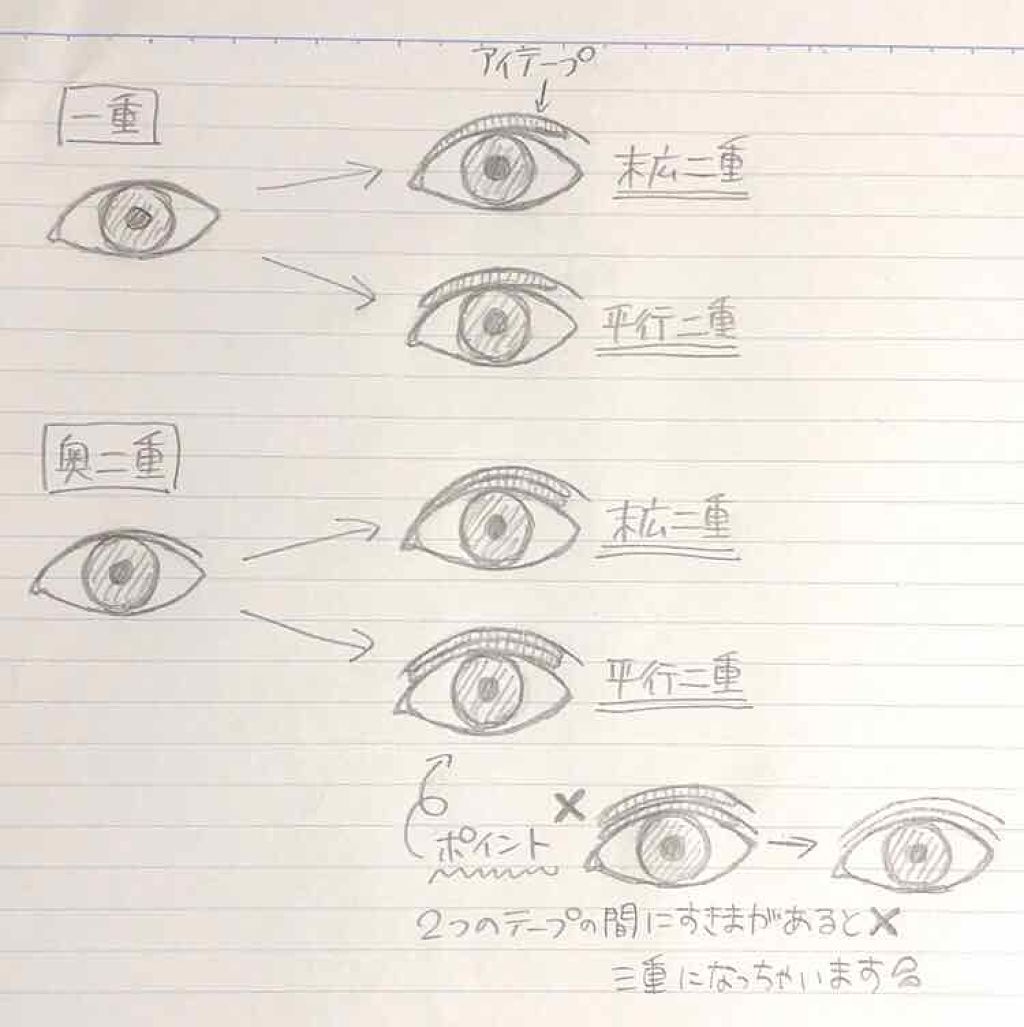 アイテープ
一重
末広二重
平行二重
奥二重
末広二重
平行二重
ポイント
2つのテープの間にすきまがあると×
三重になっちゃいます